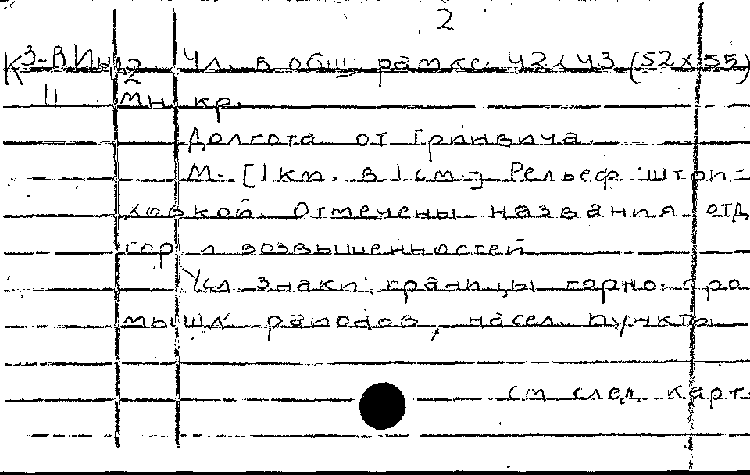 2
К3-В Ин 2 Чл. в общ рамке 42х43 (52х55)
11 мн кр.
Долгота от Гринвича
М. [1км. в 1см.] Рельеф штри-
ховкой. Отмечены названия отд
гор и возвышенностей
Усл знаки: границы горно-про
мышл районов, насел пункты
см след карт